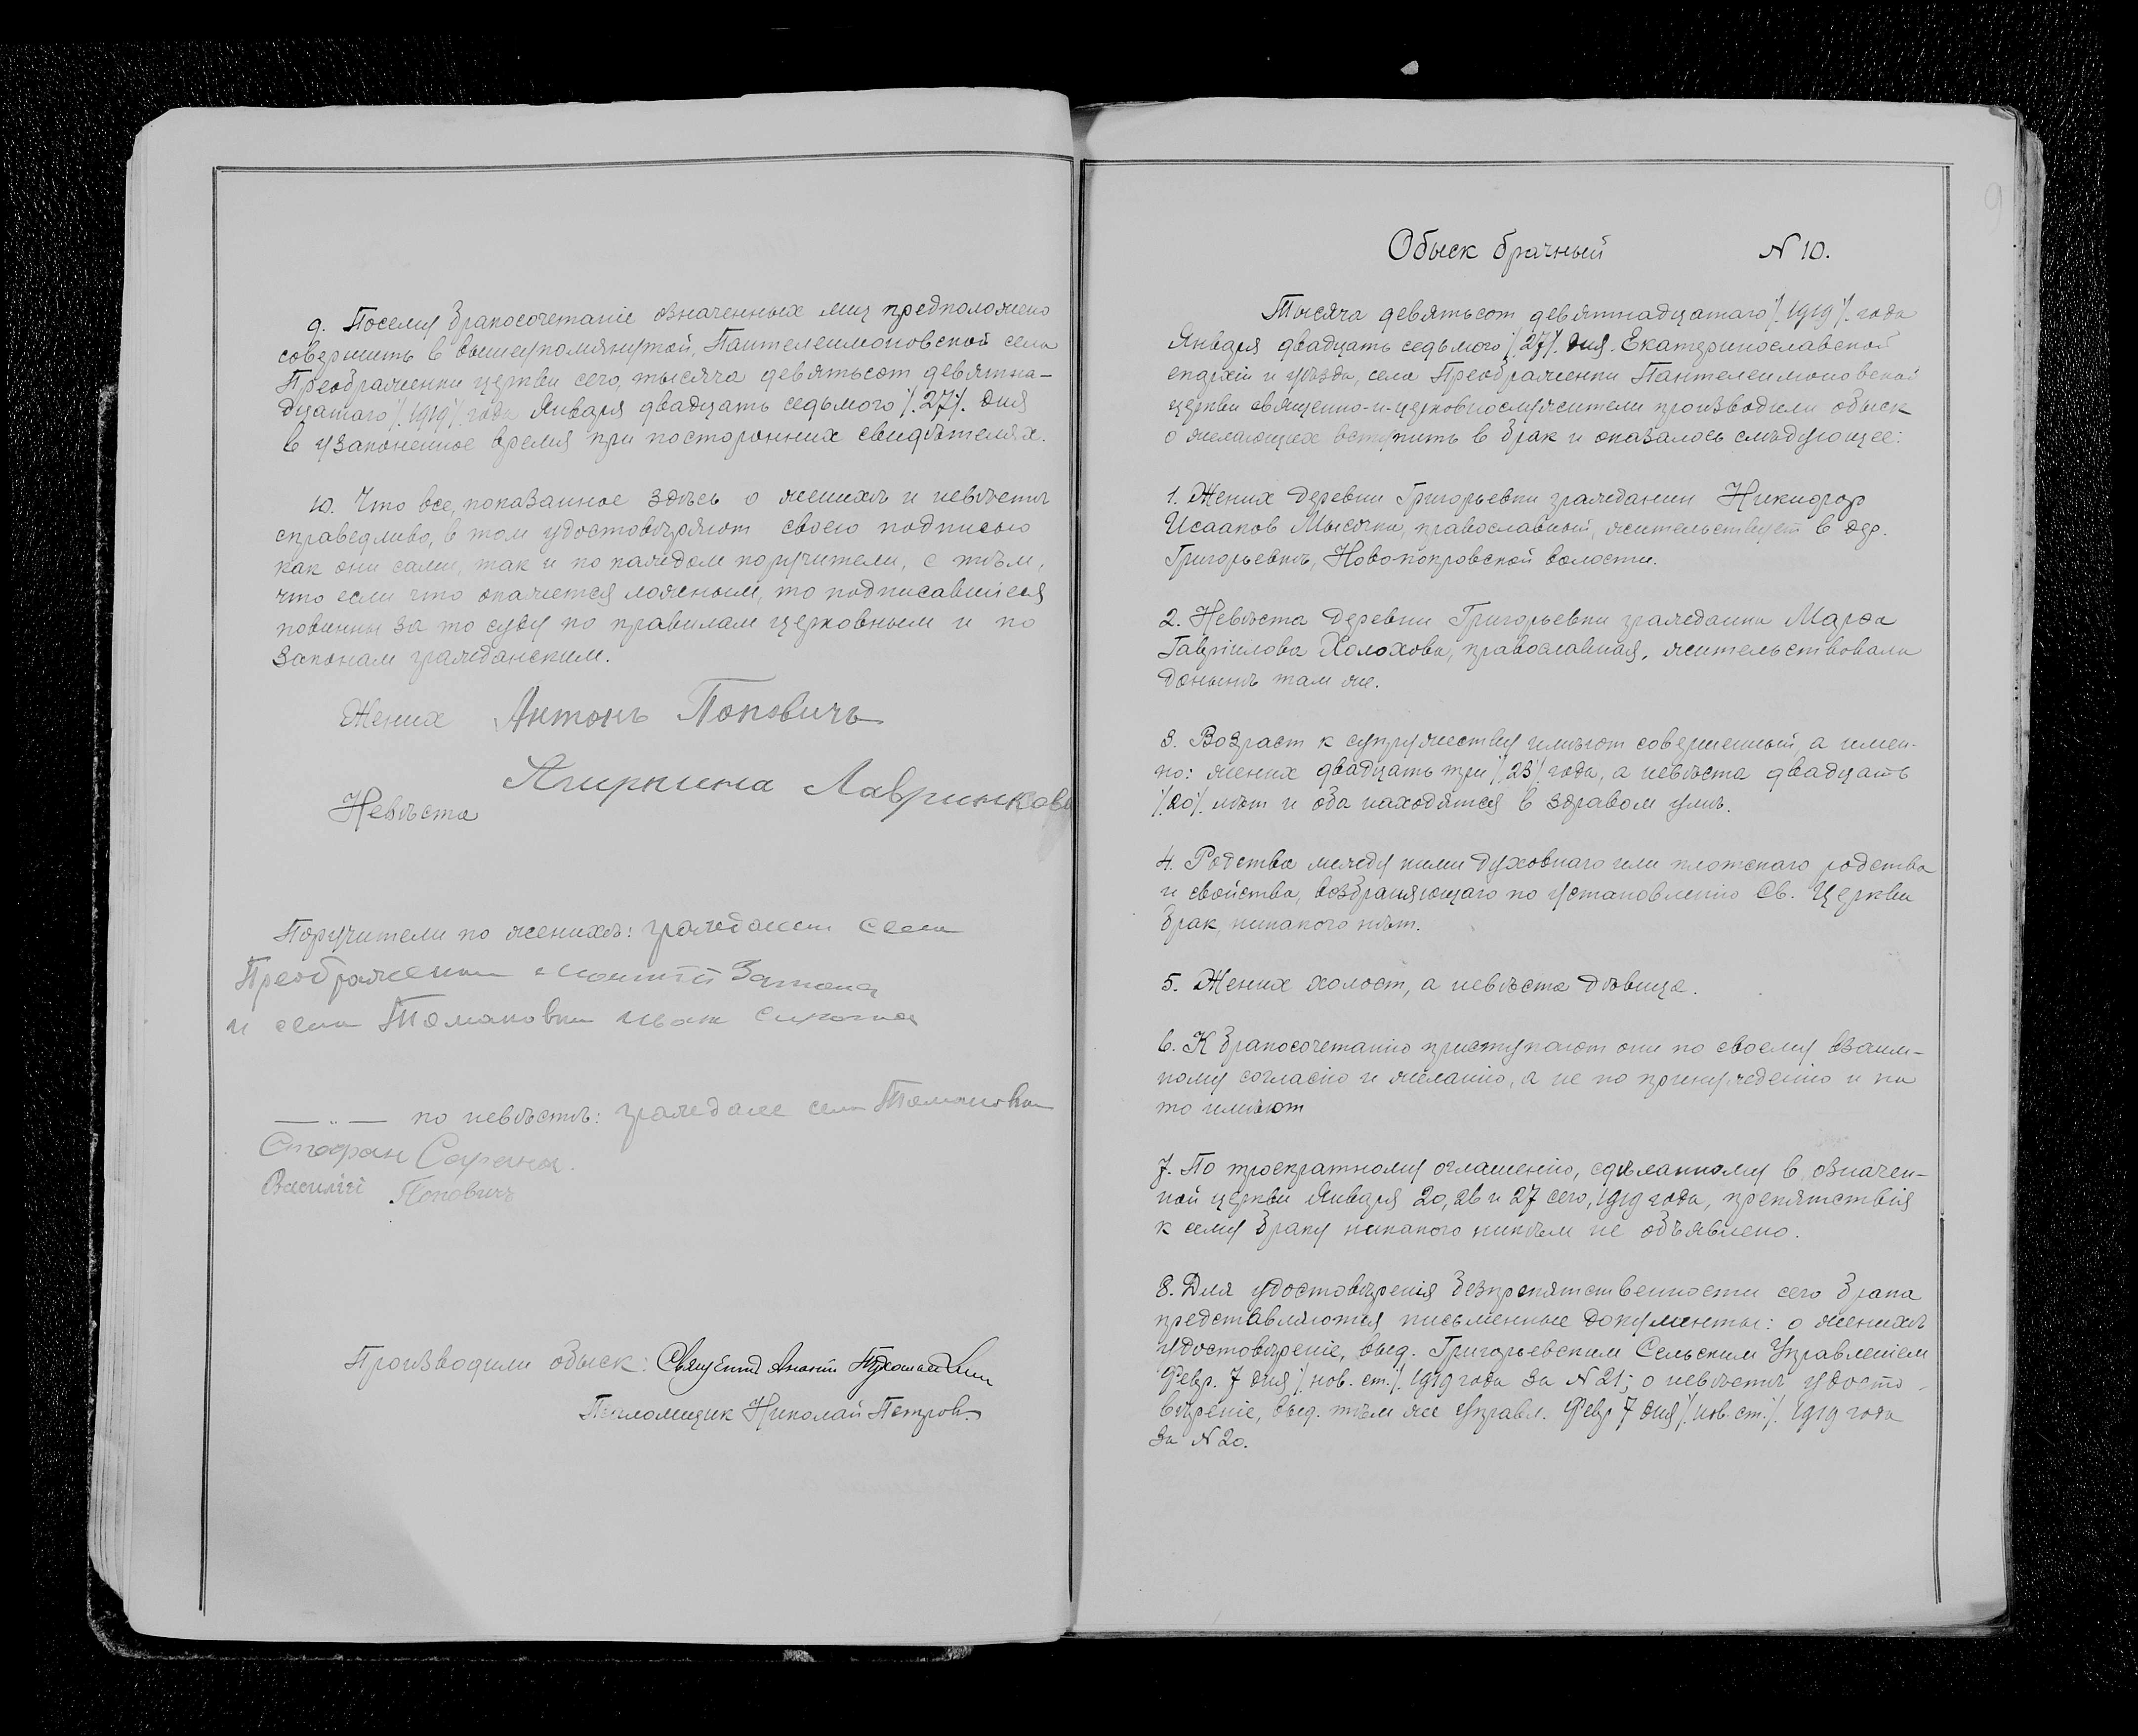 9. Посему бракосочетаніе означенных лиц предположено
совершить в вышеупомянутой, Пантелеимоновской села
Преображенки церкви сего, тысяча девятьсот девятна-
дцатаго /.1919/. года Января двадцать седьмого /.27/. дня
в узаконенное время при посторонних свидѣтелях.
10. Что все, показанное здѣсь о женихѣ и невѣстѣ
справедливо, в том удостовѣряют своею подписью
как они сами, так и по каждом поручители, с тѣм,
что если что окажется ложным, то подписавшіеся
повинны за то суду по правилам церковным и по
законам гражданским.
Жених Антонъ Поповичъ
Невѣста
Поручители по женихѣ: граждане села
Преображенки
и села Томаковки
—„— по невѣстѣ: граждане села Томаковки
Стефан
Василій Поповичъ
Производили обыск:
Псаломщик Николай Петров.
Обыск брачный N 10.
Тысяча девятьсот девятнадцатаго /.1919/. года
Января двадцать седьмого /.27/. дня. Екатеринославской
епархіи и уѣзда, села Преображенки Пантелеимоновской
церкви священно-и-церковнослужители производили обыск
о желающих вступить в брак и оказалось слѣдующее:
1. Жених деревни Григорьевки гражданин Никифор
Исааков Мысочка, православный, жительствует в дер.
Григорьевкѣ, Ново-покровской волости.
2. Невѣста деревни Григорьевки гражданка Марфа
Гавріилова Холохова, православная, жительствовала
донынѣ там же.
3. Возраст к супружеству имѣют совершенный, а имен-
но: жених двадцать три /.23/. года, а невѣста двадцать
/.20/. лѣт и оба находятся в здравом умѣ.
4. Родства между ними духовнаго или плотскаго родства
и свойства, возбраняющаго по установленію Св. Церкви
брак, никакого нѣт.
5. Жених холост, а невѣста дѣвица.
6. К бракосочетанію приступают они по своему взаим-
ному согласію и желанію, а не по принужденію и на
то имѣют
7. По троекратному оглашенію, сдѣланному в означен-
ной церкви Января 20, 26 и 27 сего, 1919 года, препятствія
к сему браку никакого никѣм не объявлено.
8. Для удостовѣренія безпрепятственности сего брака
представляются письменные документы: о женихѣ
удостовѣреніе, выд. Григорьевским Сельским Управленіем
Февр. 7 дня /.нов. ст./. 1919 года за N 21; о невѣстѣ удосто-
вѣреніе, выд. тѣм же Управл. Февр 7 дня /.нов. ст./. 1919 года
за N 20.